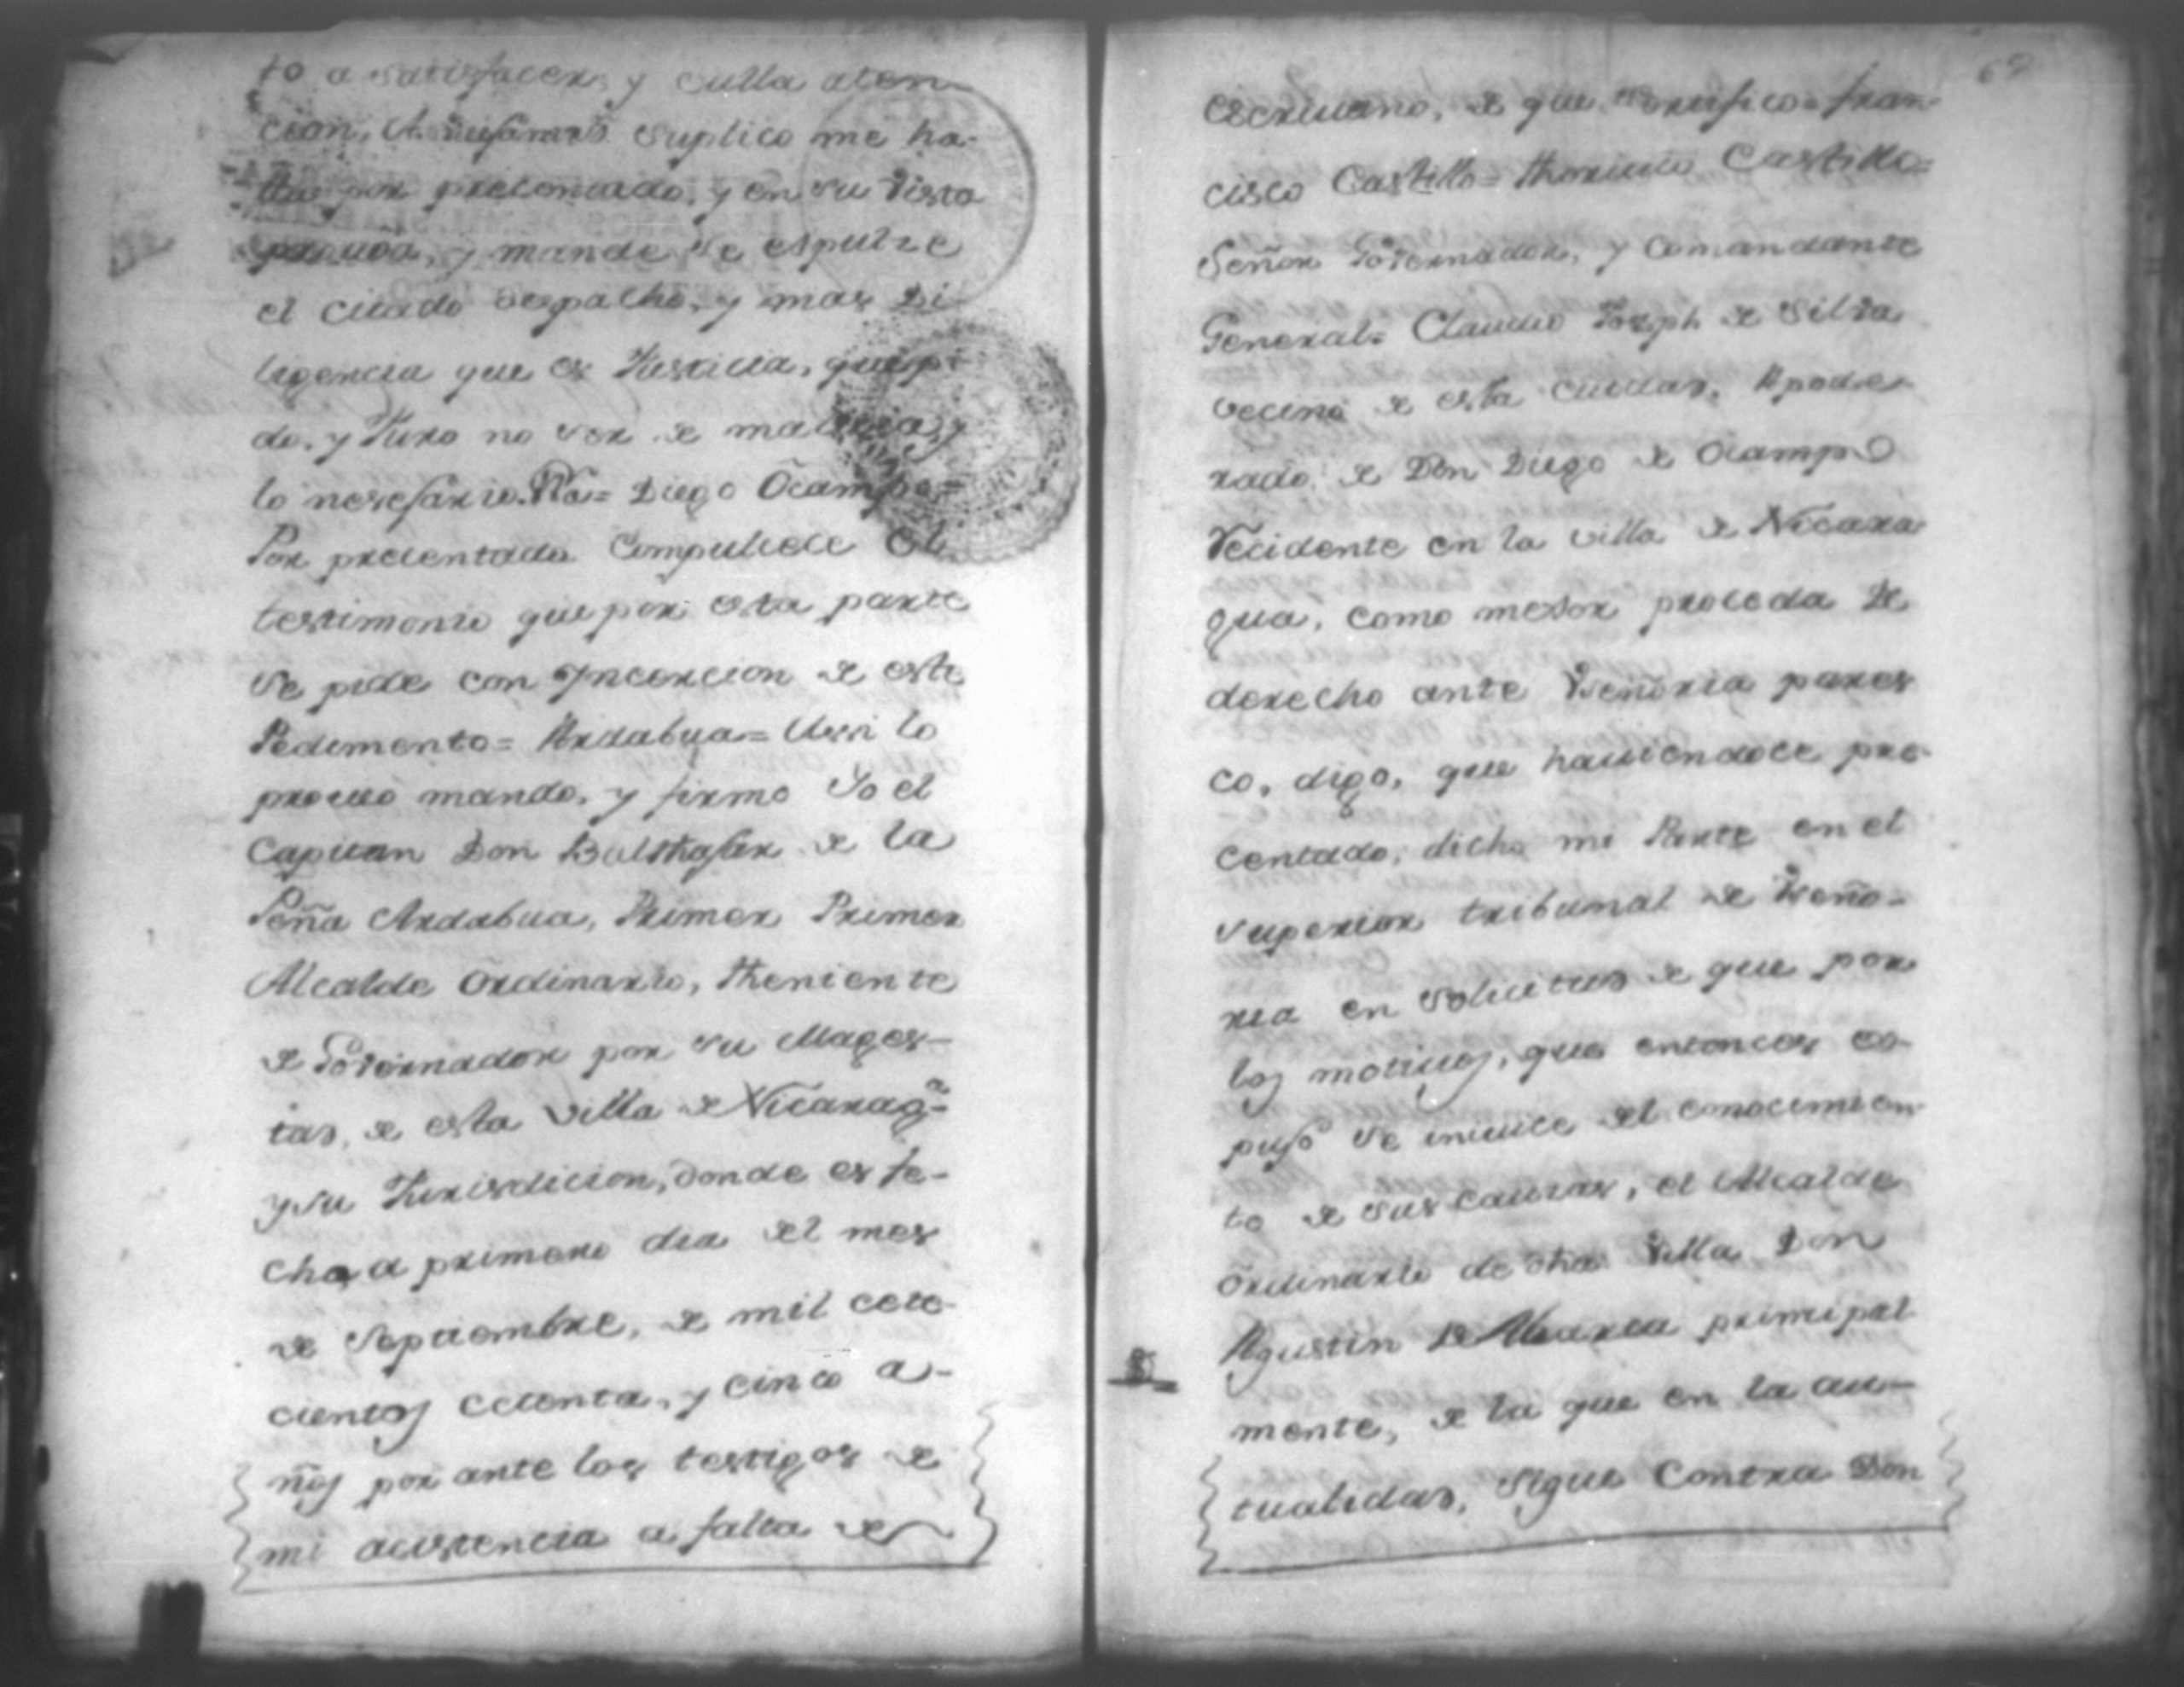 to a satisfacer, y culla aten-
cion, A Vuesamrd suplico me ha-
lla por precentado, y en su Vista
probea, y mande se espulze
el citado despacho, y mas di-
ligencia que es Justicia, que pi-
do, y Juro no ser de malicia, y
lo nesesario. Va= Diego Ocampo=
Por precentada Compulcece el
testimonio que por esta parte
se pide con Yncercion de este
Pedimento= Ardabua= Assi lo
proueo mando, y firmo Yo el
Capitan Don Balthasar de la
Peña Ardabua, Primer Primer
Alcalde Ordinario, Theniente
de Governador por su Mages-
tad, de esta Villa de Nicarag.ª
y su Jurisdicion, donde es fe-
cho, a primero dia del mes
de Septiembre, de mil cete-
cientos cecenta, y cinco a-
ños por ante los testigos de
mi acistencia a falta de
69
Escriuano, de que sertifico= Fran-
cisco Castillo= Thoriuio Castillo=
Señor Governador, y Comandante
General= Claudio Joseph de Silva
vecino de esta ciudad, Apode-
rado de Don Diego de Ocampo
Recidente en la villa de Nicara-
gua, como mexor proceda de
derecho ante Vseñoria pares-
co, digo, que hauiendoce pre-
centado, dicho mi Parte en el
superior tribunal de Vseño-
ria en solicitud de que por
los motiuos, que entonces es-
puso se iniuice del conocimien-
to de sus causas, el Alcalde
Ordinario de dha Villa Don
Agustin de principal-
mente, de la que en la au-
tualidad, sigue Contra Don